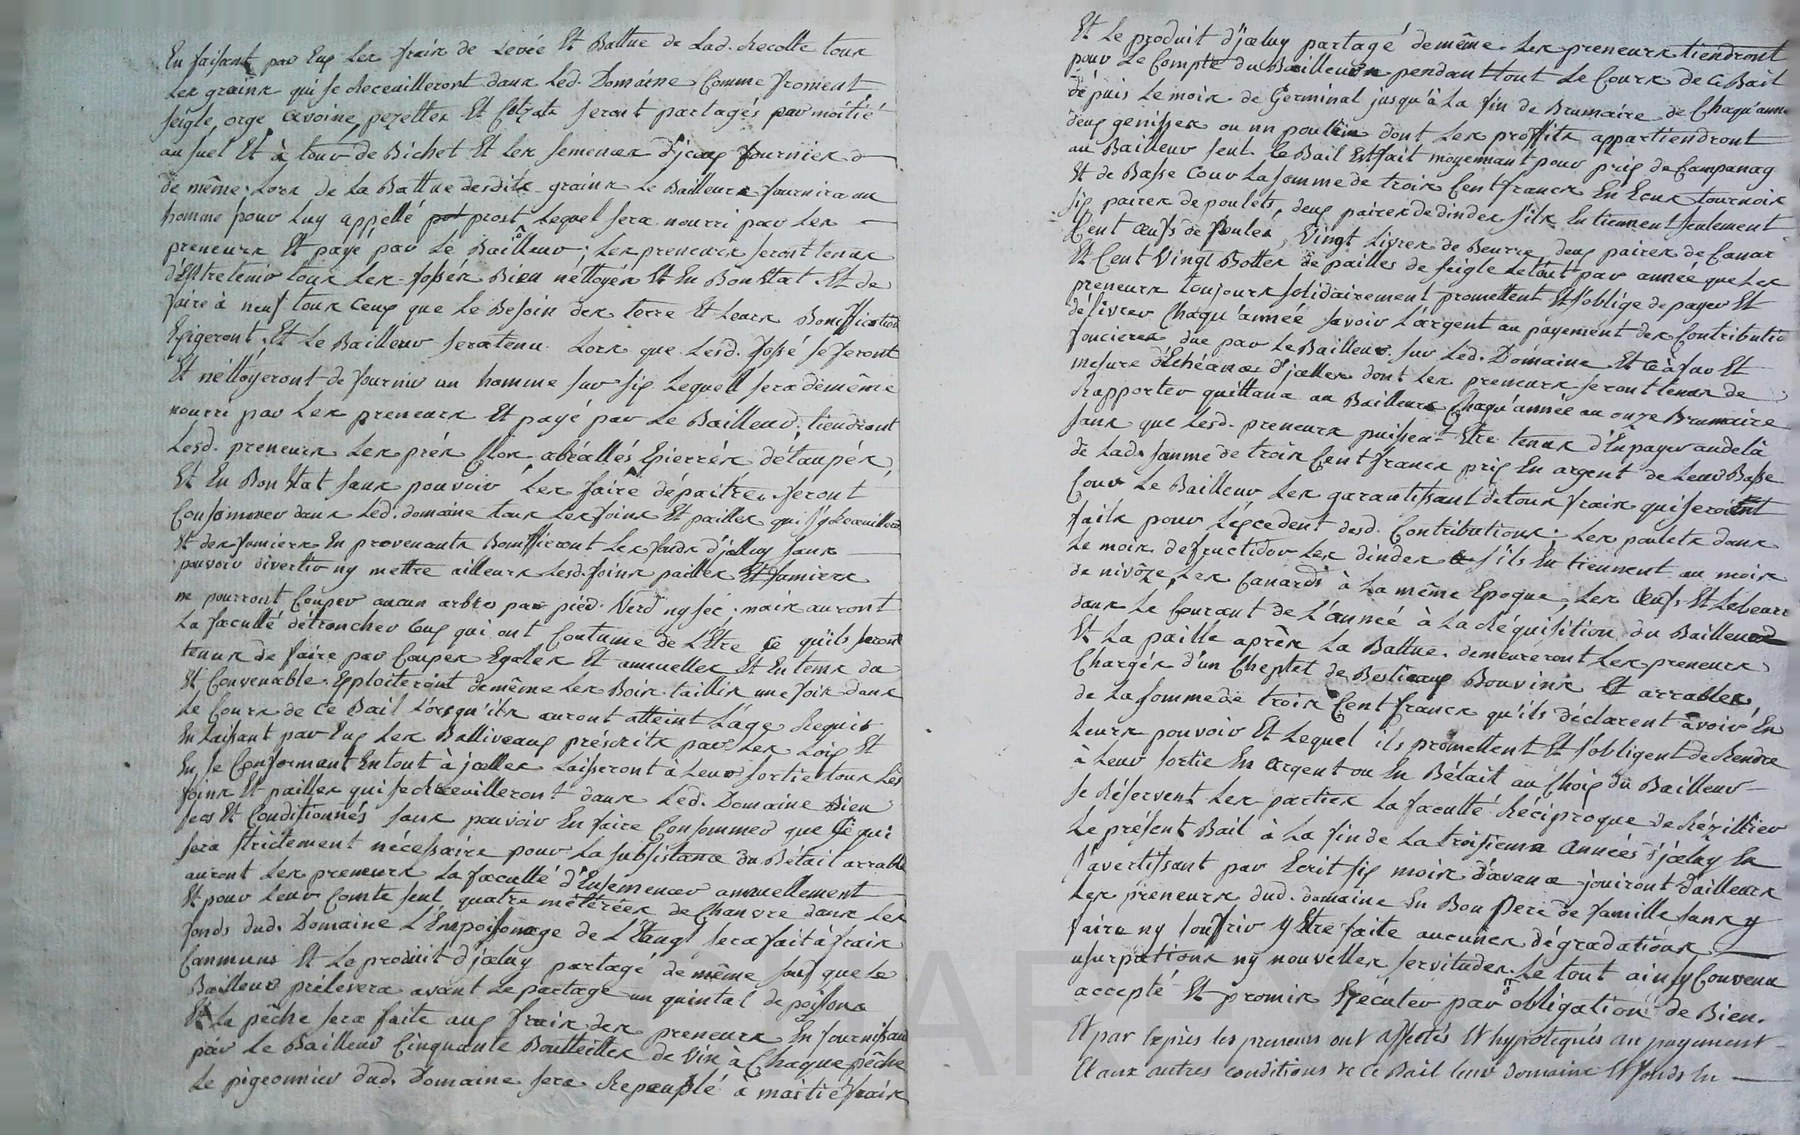 En faisant par Eux Les frais de Levée Et Battue de Lad. Recolte tous
Les grains qui se Receuilleront dans Led. Domaine Comme froment,
seigle, orge avoine, pezettes Et seront partagés par moitié
au suel Et à tour de Bichet Et Les semences d'jceux fournies
de même; Lors de La Battue desdits grains Le Bailleur fournira un
homme pour Luy appellé prost Lequel sera nourri par Les
preneurs Et payé par Le Bailleur; Les preneurs seront tenus
d'Entretenir tous Les fossés Bien nettoyés Et En Bon Etat Et de
faire à neuf tous Ceux que Le Besoin des terre Et Leurs Bonification
Exigeront, Et Le Bailleur sera tenu Lors que Lesd. fossé se feront
Et néttoyéront de fournir un homme sur six Lequell sera demême
nourri par Les preneurs Et payé par Le Bailleur. tiendront
Lesd. preneurs Les prés Clos abéallés Epierrés détaupés,
Et En Bon Etat sans pouvoir Les faire dépaitre. seront
Consommés dans Led. domaine tous Les foins Et pailles qui s'y Receuilleront
Et des fumiers En provenants Bonniffieront Les fonds d'jcelluy sans
pouvoir divertir ny mettre ailleurs Lesd. foins pailles Et fumiers
ne pourront Couper aucun arbres par pied Verd ny séc; mais auront
La faculté détroncher Ceux qui ont Coutume de L'Etre Ce qu'ils seront
tenus de faire par Coupes Egales Et annuelles Et En tems du
Et Convenable. Exploiteront demême Les Bois taillis une fois dans
Le Cours de Ce Bail Lorsqu'ils auront atteint L'age Requis
En Laissant par Eux Les Balliveaux préscrits par Les Loix Et
En se Conformant En tout à jcelles Laisseront à Leur sortie tous Les
foins Et pailles qui se Receuilleront dans Led. Domaine Bien
secs Et Conditionnés sans pouvoir En faire Consommer que Ce qui
sera strictement nécessaire pour La subsistance du Bétail arrable
auront Les preneurs La faculté d'Ensemencer annuellement
Et pour Leur Comte seul quatre méttérées de Chanvre dans Les
fonds dud. Domaine L'Empoissonage de L'Etang sera fait à frais
Communs Et Le produit d'jceluy partagé de même sauf que Le
Bailleur prélevera avant Le partage un quintal de poissons
Et La pêche sera faite aux frais des preneurs En fournissant
par Le Bailleur Cinquante Boutteilles de vin à Chaque pêche
Le pigeonnier dud. Domaine sera Repeuplé à moitié frais
Et Le produit d'jceluy partagé demême. Les preneurs tiendront
pour Le Compte du Bailleur pendant tout Le Cours de Ce Bail
dépuis Le mois de Germinal jusqu'à La fin de Brumaire de Chaqu'année
deux genisses ou un poulin dont Les proffits appartiendront
au Bailleur seul. Ce Bail Est fait moyennant pour prix de Campanag
Et de Basse Cour La somme de trois Cent francs En Ecus tournois
six paires de poulets, deux paires de dindes s'ils En tiennent seulement
Cent œufs de poules, Vingt Livres de Beurre deux paires de Canar
Et Cent Vingt Bottes de pailles de seigle Le tout par année que Les
preneurs toujours solidairement promettent Et s'oblige de payer Et
délivrer Chaqu'année savoir L'argent au payement des Contributio
foncieres due par Le Bailleur sur Led. Domaine Et Et
mesure d'Echéances d'jcelles dont Les preneurs seront tenus de
Rapporter quittance au Bailleur Chaqu'année au onze Brumaire
sans que Lesd. preneurs puissent Etre tenus d'En payer au delà
de Lad. somme de trois Cent francs prix En argent de Leur Basse
Cour Le Bailleur Les garantissant de tous frais qui seroient
faits pour L'éxcedent desd. Contributions. Les poulets dans
Le mois de fructidor Les dindes s'ils En tiennent au mois
de nivôze, Les Canards à La même Epoque, Les Œufs Et Le beurre
dans Le Courant de L'année à La Réquisition du Bailleur
Et La paille après La Battue. demeureront Les preneurs
Chargés d'un Cheptel de Bestieaux Bouvins Et arrables,
de La somme de trois Cent francs qu'ils déclarent avoir En
Leurs pouvoir Et Lequel ils promettent Et s'obligent de Rendre
à Leur sortie En argent ou En Bétail au Choix du Bailleur
se Réservent Les parties La faculté Réciproque de Rézillier
Le présent Bail à La fin de La troisieme Années d'jceluy En
s'avertissant par Ecrit six mois d'avance jouiront d'ailleurs
Les preneurs dud. domaine En Bon Pere de famille sans y
faire ny souffrir y Etre faite aucunes dégradations
usurpations ny nouvelles servitudes. Le tout ainsy Convenu
accepté Et promis Exécuter par obligation de Bien.
Et par Exprès les preneurs ont affectés Et hypotequés au payement
Et aux autres conditions de Ce Bail leur domaine Et fonds En